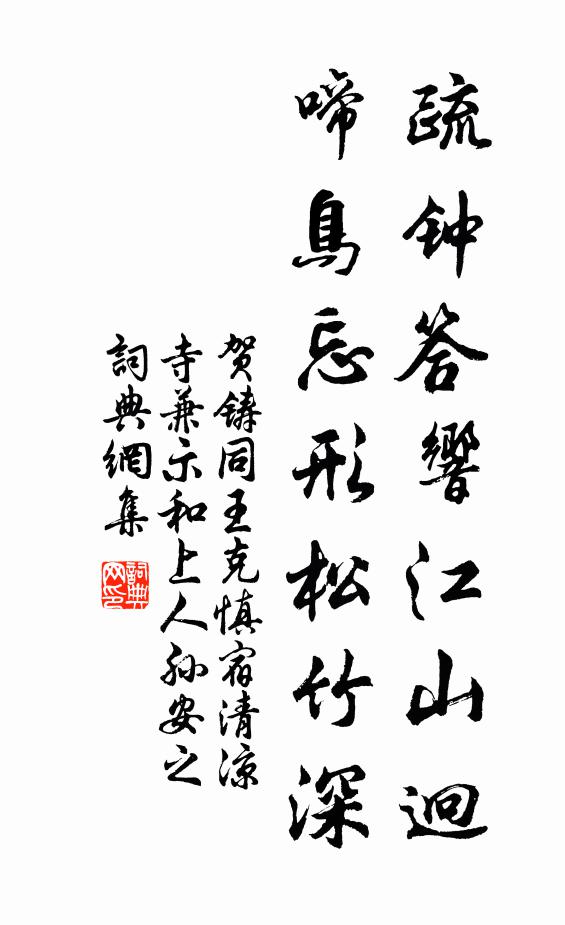 疏钟答響江山迴
啼鳥忘形松竹深
贺鑄同王克慎宿清凉
寺兼示和上人孙安之
詞典網集
詞典网印